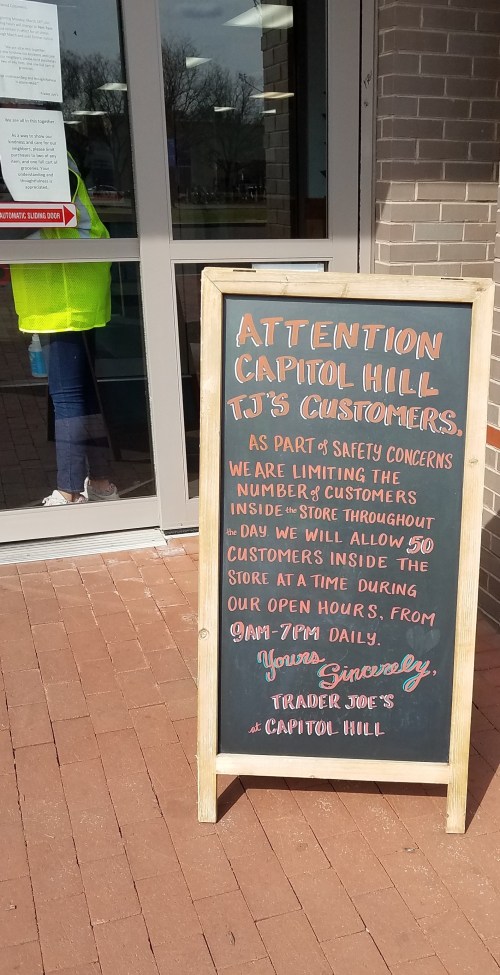 We are all in this together.
As a way to show our
kindness and care for our
neighbors, please limit
purchases to two of any
item, and one full cart of
groceries. Your
understanding and
thoughtfulness is
appreciated.
AUTOMATIC SLIDING DOOR
ATTENTION
CAPITOL HILL
TJ'S CUSTOMERS.
AS PART of SAFETY CONCERNS
WE ARE LIMITING THE
NUMBER of CUSTOMERS
INSIDE the STORE THROUGHOUT
the DAY. WE WILL ALLOW 50
CUSTOMERS INSIDE THE
STORE AT A TIME DURING
OUR OPEN HOURS, FROM
9AM-7PM DAILY.
Yours Sincerely,
TRADER JOE'S
at CAPITOL HILL